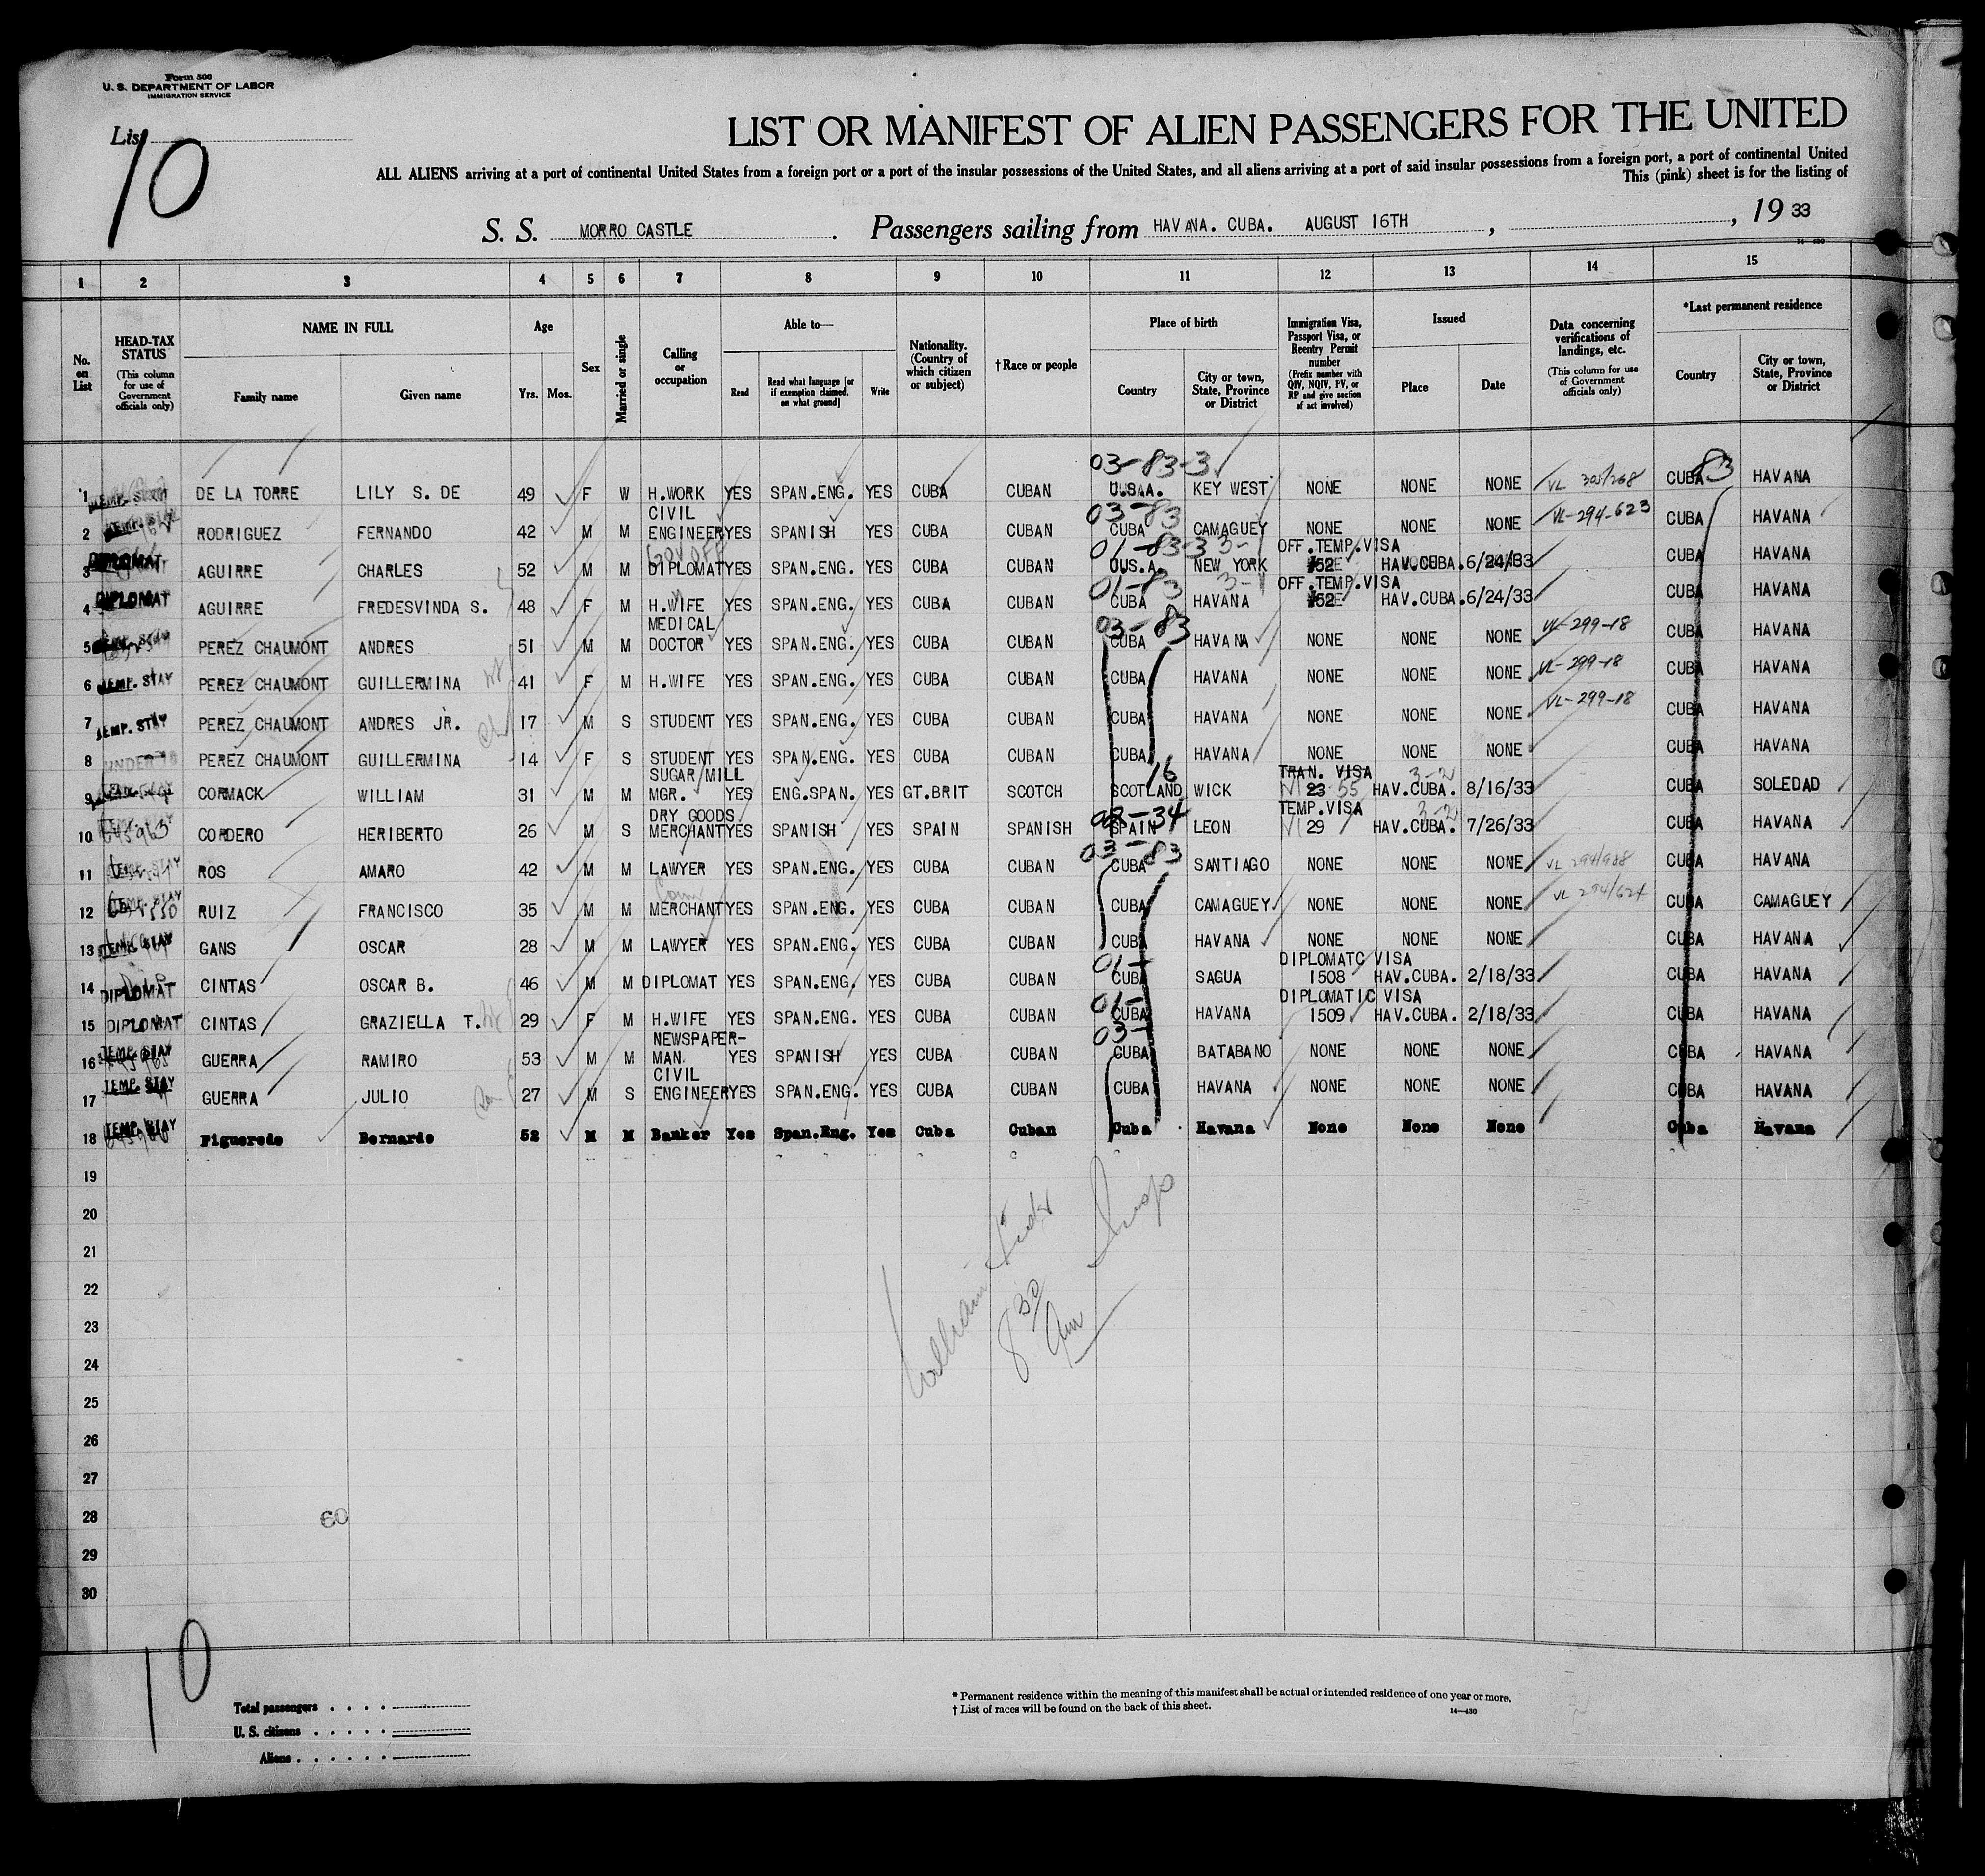 Form 500
U. S. DEPARTMENT OF LABOR
IMMIGRATION SERVICE
List
10
LIST OR MANIFEST OF ALIEN PASSENGERS FOR THE UNITED
ALL ALIENS arriving at a port of continental United States from a foreign port or a port of the insular possessions of the United States, and all aliens arriving at a port of said insular possessions from a foreign port, a port of continental United
This (pink) sheet is for the listing of
S. S. MORRO CASTLE. Passengers sailing from HAVANA. CUBA. AUGUST 16TH, , 19 33
14-430
1 2 3 4 5 6 7 8 9 10 11 12 13 14 15
No. on List
HEAD-TAX STATUS (This column for use of Government officials only)
NAME IN FULL Family name Given name
Age Yrs. Mos.
Sex
Married or single
Calling or occupation
Able to— Read Read what language [or if exemption claimed, on what ground] Write
Nationality. (Country of which citizen or subject)
†Race or people
Place of birth Country City or town, State, Province or District
Immigration Visa, Passport Visa, or Reentry Permit number (Prefix number with QIV, NQIV, PV, or RP and give section of act involved)
Issued Place Date
Data concerning verifications of landings, etc. (This column for use of Government officials only)
*Last permanent residence Country City or town, State, Province or District
03-83-3 83
1 TEMP. STAY DE LA TORRE LILY S. DE 49 F W H.WORK YES SPAN.ENG. YES CUBA CUBAN U.S.A. KEY WEST NONE NONE NONE VL 305/268 CUBA HAVANA
CIVIL 03-83
2 TEMP. STAY RODRIGUEZ FERNANDO 42 M M ENGINEER YES SPANISH YES CUBA CUBAN CUBA CAMAGUEY NONE NONE NONE VL-294-623 CUBA HAVANA
GOV OFF 01-83-3 3-1 OFF.TEMP.VISA
3 DIPLOMAT AGUIRRE CHARLES 52 M M DIPLOMAT YES SPAN.ENG. YES CUBA CUBAN U.S.A. NEW YORK 52 HAV.CUBA. 6/24/33 CUBA HAVANA
01-83 3-1 OFF.TEMP.VISA
4 DIPLOMAT AGUIRRE FREDESVINDA S. 48 F M H.WIFE YES SPAN.ENG. YES CUBA CUBAN CUBA HAVANA 52 HAV.CUBA. 6/24/33 CUBA HAVANA
MEDICAL 03-83
5 TEMP. STAY PEREZ CHAUMONT ANDRES 51 M M DOCTOR YES SPAN.ENG. YES CUBA CUBAN CUBA HAVANA NONE NONE NONE VL-299-18 CUBA HAVANA
6 TEMP. STAY PEREZ CHAUMONT GUILLERMINA wf 41 F M H.WIFE YES SPAN.ENG. YES CUBA CUBAN CUBA HAVANA NONE NONE NONE VL-299-18 CUBA HAVANA
7 TEMP. STAY PEREZ CHAUMONT ANDRES JR. ch 17 M S STUDENT YES SPAN.ENG. YES CUBA CUBAN CUBA HAVANA NONE NONE NONE VL-299-18 CUBA HAVANA
8 UNDER 16 PEREZ CHAUMONT GUILLERMINA 14 F S STUDENT YES SPAN.ENG. YES CUBA CUBAN CUBA HAVANA NONE NONE NONE CUBA HAVANA
SUGAR MILL 16 TRAN. VISA 3-2
9 CORMACK WILLIAM 31 M M MGR. YES ENG.SPAN. YES GT.BRIT SCOTCH SCOTLAND WICK 23 55 HAV.CUBA. 8/16/33 CUBA SOLEDAD
DRY GOODS 34 TEMP.VISA 3-2
10 CORDERO HERIBERTO 26 M S MERCHANT YES SPANISH YES SPAIN SPANISH SPAIN LEON 29 HAV.CUBA. 7/26/33 CUBA HAVANA
03-83
11 TEMP. STAY ROS AMARO 42 M M LAWYER YES SPAN.ENG. YES CUBA CUBAN CUBA SANTIAGO NONE NONE NONE CUBA HAVANA
12 TEMP. STAY RUIZ FRANCISCO 35 M M MERCHANT YES SPAN.ENG. YES CUBA CUBAN CUBA CAMAGUEY NONE NONE NONE VL 294/624 CUBA CAMAGUEY
13 TEMP. STAY GANS OSCAR 28 M M LAWYER YES SPAN.ENG. YES CUBA CUBAN CUBA HAVANA NONE NONE NONE CUBA HAVANA
01- DIPLOMATC VISA
14 DIPLOMAT CINTAS OSCAR B. 46 M M DIPLOMAT YES SPAN.ENG. YES CUBA CUBAN CUBA SAGUA 1508 HAV.CUBA. 2/18/33 CUBA HAVANA
01- DIPLOMATIC VISA
15 DIPLOMAT CINTAS GRAZIELLA T. 29 F M H.WIFE YES SPAN.ENG. YES CUBA CUBAN CUBA HAVANA 1509 HAV.CUBA. 2/18/33 CUBA HAVANA
NEWSPAPER- 03-
16 TEMP. STAY GUERRA RAMIRO 53 M M MAN. YES SPANISH YES CUBA CUBAN CUBA BATABANO NONE NONE NONE CUBA HAVANA
CIVIL
17 TEMP. STAY GUERRA JULIO 27 M S ENGINEER YES SPAN.ENG. YES CUBA CUBAN CUBA HAVANA NONE NONE NONE CUBA HAVANA
18 TEMP. STAY Figueredo Bernardo 52 M M Banker Yes Span.Eng. Yes Cuba Cuban Cuba Havana None None None Cuba Havana
19
20
21
22
William Insp
8 30 am
23
24
25
26
27
28 60
29
30
10
Total passengers . . . .
U. S. citizens . . . . .
Aliens . . . . . .
* Permanent residence within the meaning of this manifest shall be actual or intended residence of one year or more.
† List of races will be found on the back of this sheet.
14-430